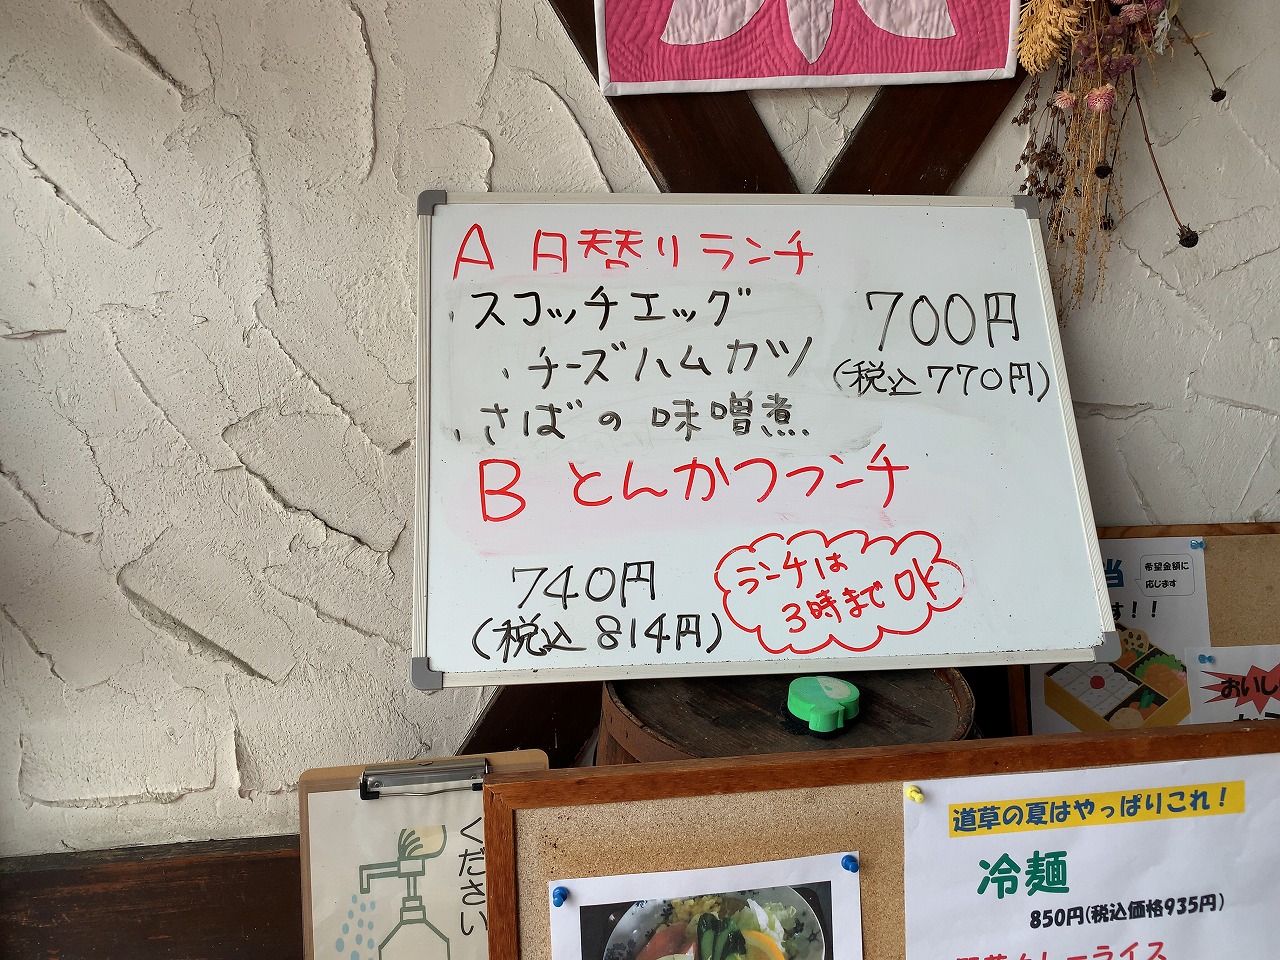 A 日替りランチ
、スコッチエッグ
、チーズハムカツ
、さばの味噌煮
700円
(税込770円)
B とんかつランチ
740円
(税込814円)
ランチは
3時までOK
希望金額に
応じます
す!!
おいし
ください
道草の夏はやっぱりこれ!
冷麺
850円(税込価格935円)